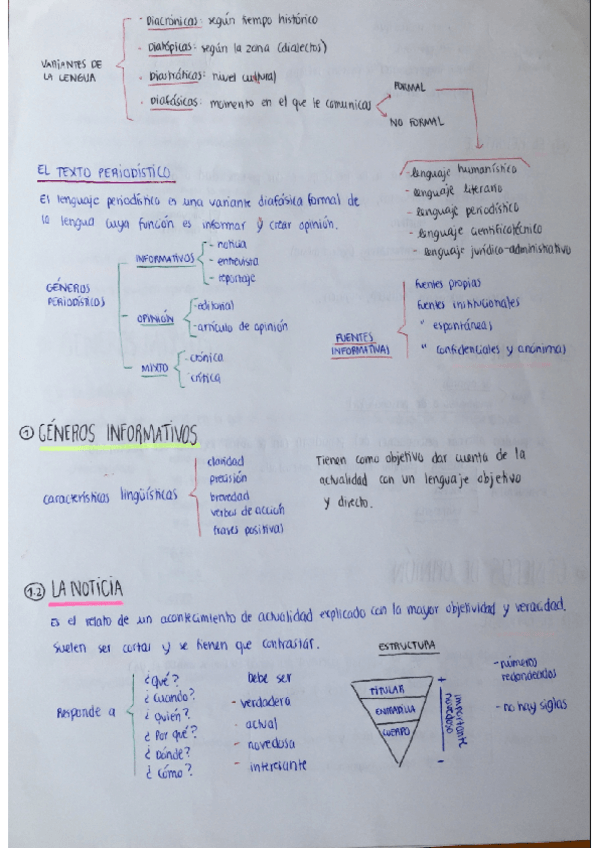 VARIANTES DE
LA LENGUA
- Diacrónicas: según tiempo histórico
- Diatópicas: según la zona (dialectos)
- Diastráticas: nivel cultural
- Diafásicas: momento en el que te comunicas
FORMAL
NO FORMAL
- lenguaje humanístico
- lenguaje literario
- lenguaje periodístico
- lenguaje científicotécnico
- lenguaje jurídico-administrativo
EL TEXTO PERIODÍSTICO
El lenguaje periodístico es una variante diafásica formal de
la lengua cuya función es informar y crear opinión.
GÉNEROS
PERIODÍSTICOS
INFORMATIVOS
- noticia
- entrevista
- reportaje
OPINIÓN
- editorial
- artículo de opinión
MIXTO
- crónica
- crítica
FUENTES
INFORMATIVAS
fuentes propias
fuentes institucionales
" espontáneas
" confidenciales y anónimas
① GÉNEROS INFORMATIVOS
características lingüísticas
claridad
precisión
brevedad
verbos de acción
frases positivas
Tienen como objetivo dar cuenta de la
actualidad con un lenguaje objetivo
y directo.
1.2 LA NOTICIA
Es el relato de un acontecimiento de actualidad explicado con la mayor objetividad y veracidad.
Suelen ser cortas y se tienen que contrastar.
Responde a
¿Qué?
¿Cuando?
¿Quién?
¿Por qué?
¿Dónde?
¿Cómo?
debe ser
- verdadera
- actual
- novedosa
- interesante
ESTRUCTURA
TITULAR
ENTRADILLA
CUERPO
+
importante
novedoso
-
- números
redondeados
- no hay siglas